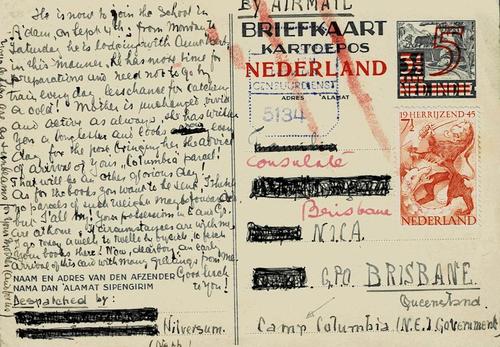 He is now to join the School in
A'dam, on Sept 4th, from Monday to
Saturday he is lodging with Aunt
in this manner. He has more time for
preparations and need not to go by
train every day. Less chance for catching
a cold! Mother is unchanged vivid
and active as always, she has written
you a long letter and looks every
day for the post bringing her the advice
of arrival of your "Columbia parcel".
That will be other glorious day
As for the books you want to be sent I
no parcels of such weight may be forwarded
but I'll try! Your possessions in
are at home. If circumstances are with me
go today a week to
your books there! Now, dear boy, an early
arrival of this card with many greetings from me
Good luck
to you!
NAAM EN ADRES VAN DEN AFZENDER
NAMA DAN 'ALAMAT SIPENGIRIM
Despatched by:
Hilversum.
(Neth.)
BY AIRMAIL
BRIEFKAART
KARTOEPOS
NEDERLAND
5
NED INDIE
CENSUURDIENST
ADRES ALAMAT
5134
19 HERRIJZEND 45
7½
NEDERLAND
Consulate
Brisbane
N.I.C.A.
G.P.O. BRISBANE.
Queensland
Camp Columbia (N.E.I. Government